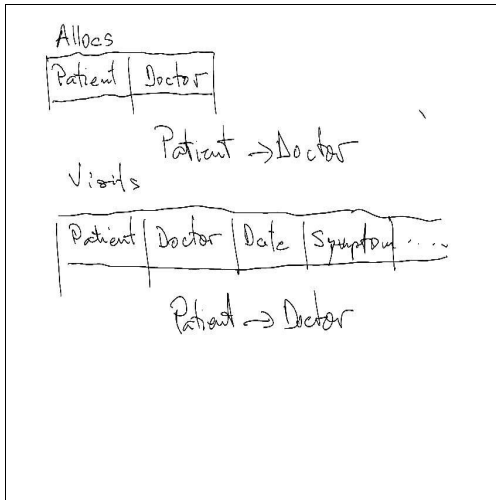 Allocs
Patient Doctor
Patient → Doctor
Visits
Patient Doctor Date Symptom ....
Patient → Doctor